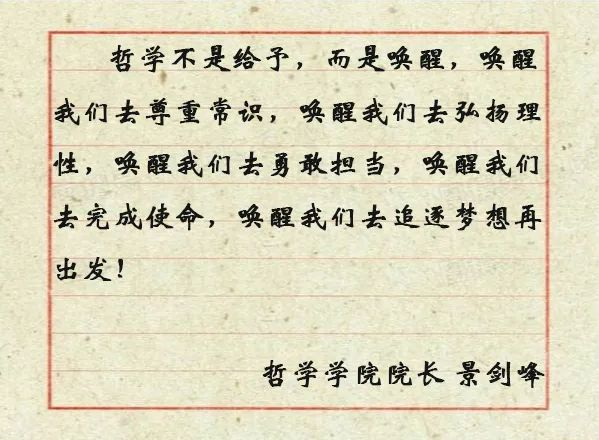 哲学不是给予，而是唤醒，唤醒
我们去尊重常识，唤醒我们去弘扬理
性，唤醒我们去勇敢担当，唤醒我们
去完成使命，唤醒我们去追逐梦想再
出发！
哲学学院院长 景剑峰